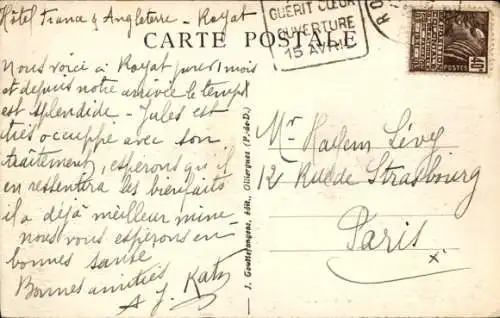 Hôtel France & Angleterre - Royat
CARTE POSTALE
GUÉRIT CŒUR
OUVERTURE
15 AVRIL
RO
POSTES
Nous voici à Royat pour 1 mois
et depuis notre arrivée le temps
est splendide - Jules est
très occuppé avec son
traitement, espérons qu'il
en ressentira les bienfaits
il a déjà meilleur mine
nous vous espérons en
bonnes santé
Bonnes amitiés
A J. Katz
J. Gouttefangeas, édit., Olliergues (P.-de-D.)
Mr Hayem Lévy
12 Rue de Strasbourg
Paris
x